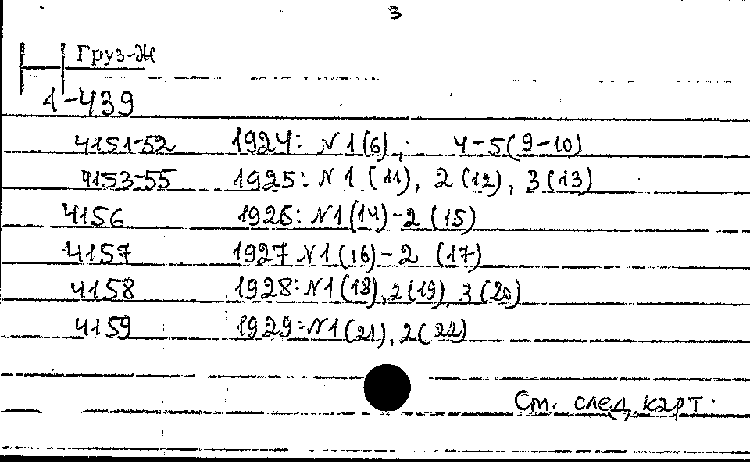 3
Груз-Ж
1-439
4151-52 1924: №1(6); 4-5(9-10)
4153-55 1925: №1 (11), 2(12), 3(13)
4156 1926: №1(14)-2(15)
4157 1927 №1(16)-2 (17)
4158 1928: №1(18), 2(19) 3(20)
4159 1929: №1(21), 2(22)
См. след. карт.